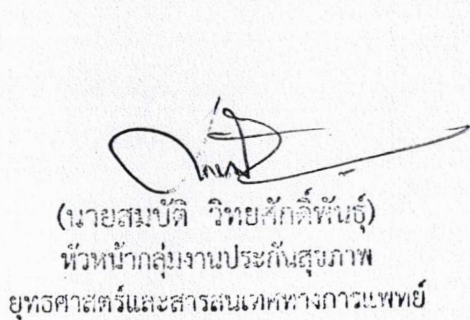 (นายสมบัติ วิทยศักดิ์พันธุ์)
หัวหน้ากลุ่มงานประกันสุขภาพ
ยุทธศาสตร์และสารสนเทศทางการแพทย์